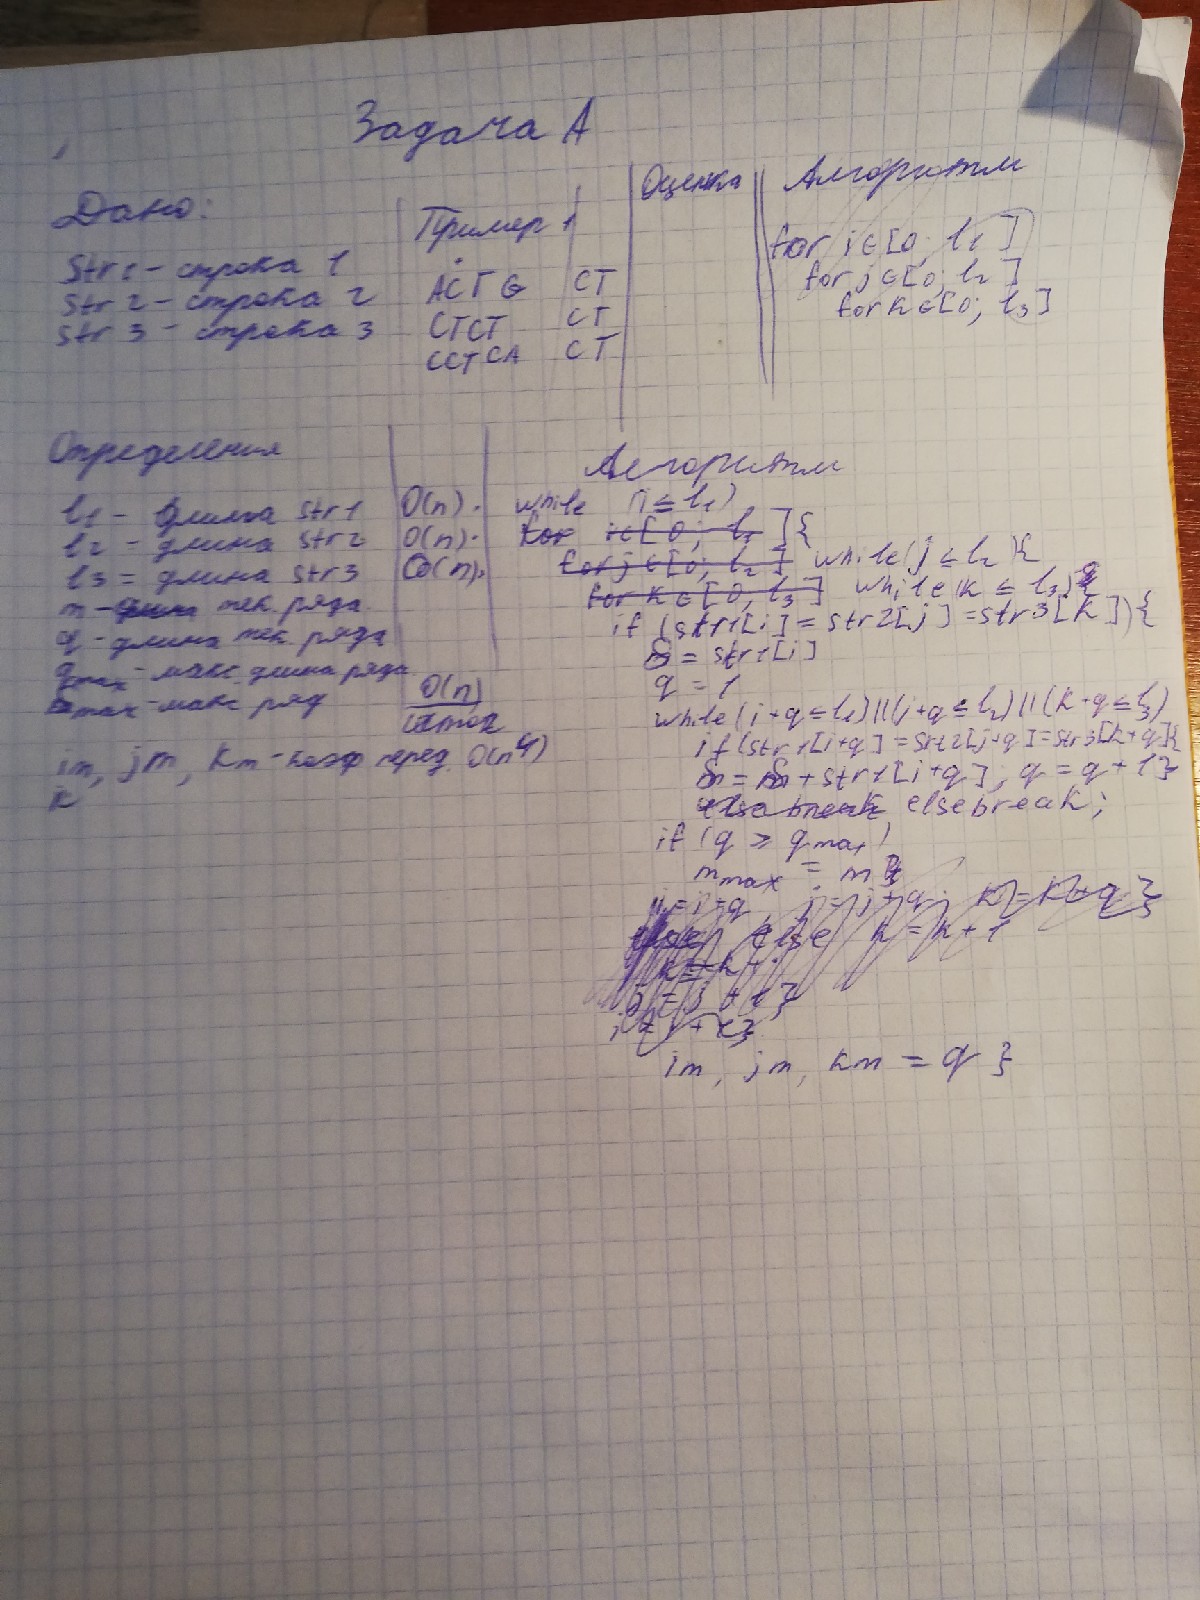 Задача А
Дано:
Str1 - строка 1
Str 2 - строка 2
Str 3 - строка 3
Пример 1
ACTG CT
CTCT CT
CCTCA CT
Оценка
Алгоритм
for i∈[0; l1]
for j∈[0; l2]
for k∈[0; l3]
Определения
l1 - длина str1
l2 - длина str2
l3 = длина str3
m - тек. ряда
q - длина тек. ряда
qmax - макс. длина ряда
max - макс ряд
im, jm, km - коэф перед.
k
O(n).
O(n).
O(n).
O(n)
O(n^4)
Алгоритм
while (i ≤ l1)
for i∈[0; l1]{
for j∈[0; l2] while(j ≤ l2){
for k∈[0, l3] while(k ≤ l3){
if (str1[i] = str2[j] = str3[k]){
= str1[i]
q = 1
while(i+q≤l1)||(j+q≤l2)||(k+q≤l3)
if(str1[i+q] = str2[j+q]=str3[k+q]{
m = m + str1[i+q]; q = q + 1}
else break else break;
if (q > qmax)
mmax = m
j = j+q; k = k+q }
else k = k + 1
j = j + 1}
im, jm, km = q }